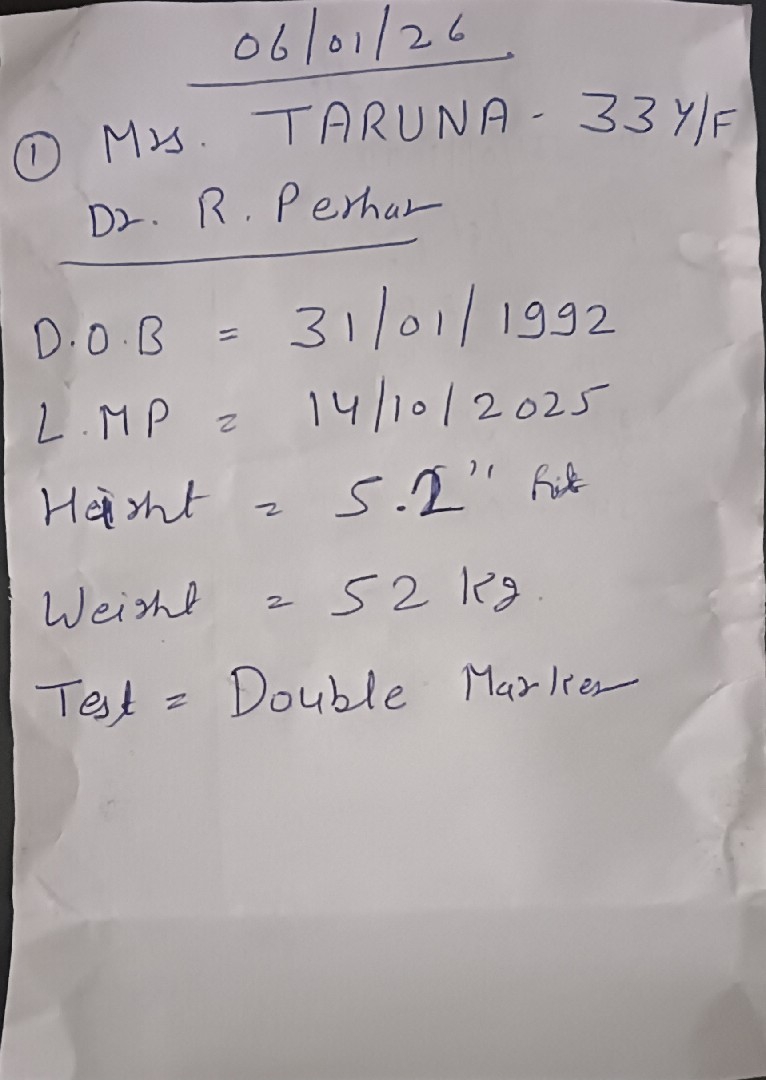 06/01/26
① Mrs. TARUNA - 33 Y/F
Dr. R. Perhar
D.O.B = 31/01/1992
L.MP = 14/10/2025
Height = 5.2"
Weight = 52 kg.
Test = Double Marker